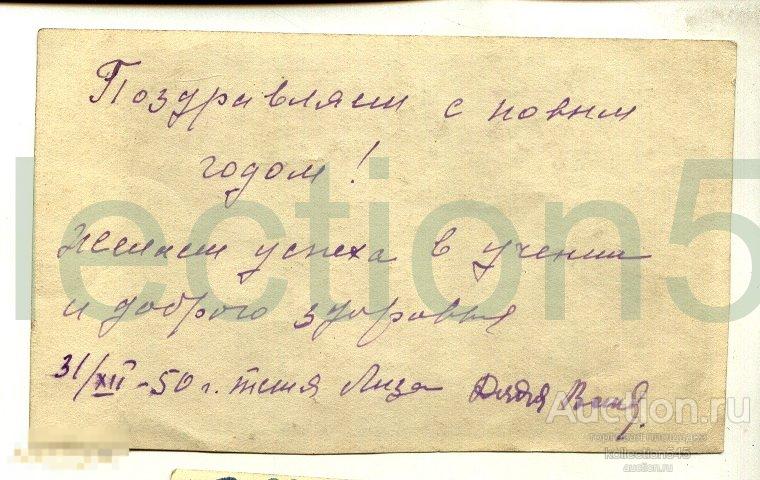 Поздравляем с новым
годом!
Желаем успеха в учении
и доброго здоровья
31/XII-50 г. тётя Лиза дядя
lection5
Auction.ru
торговая площадка
kollection545
auction.ru